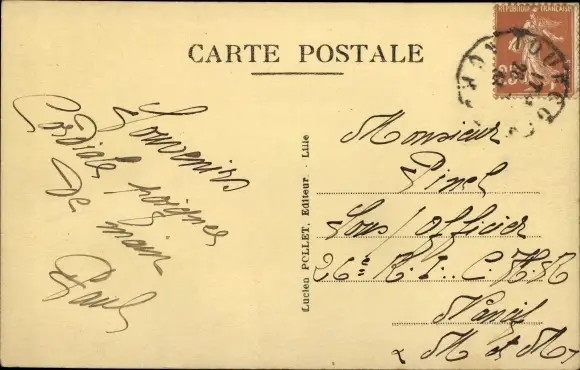 CARTE POSTALE
REPUBLIQUE FRANÇAISE
Souvenirs
Cordiale poignée
de main
Paul
Lucien POLLET, Editeur - Lille
Monsieur
Pinel
Sous/officier
26e R. I.. C. H. R
Nancy
M et M